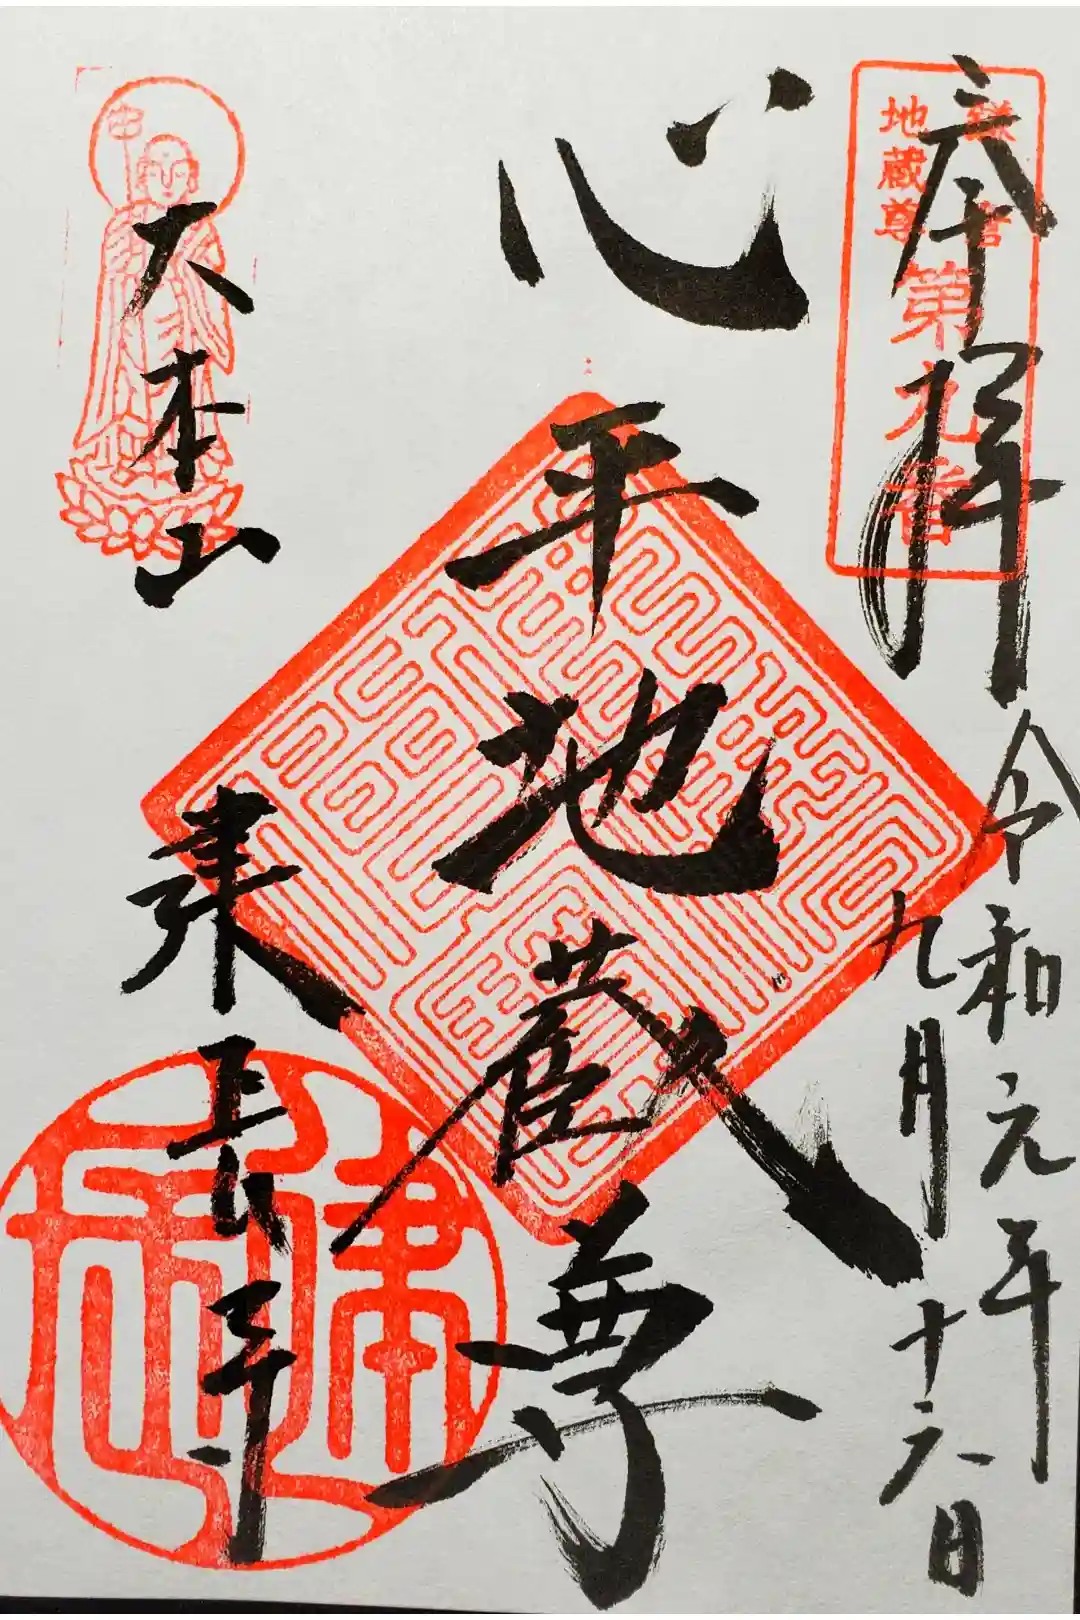 奉拝
令和元年
九月十六日
地蔵尊
第九番
心平地蔵尊
大本山
建長寺